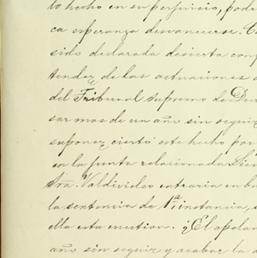 to hecho en su perjuicio, pode
ca esperanza desvanecerse. C
sido declarada desierta con
tender de las actuaciones
del Tribunal Supremo de
sar mas de un año sin segui
suponer cierto este hecho por
en la junta relacionada
tra. Valdivieso entraria en
la sentencia de 1ª instancia,
lla esta cuestion. ¿El apelan
año sin seguir y acabar la a